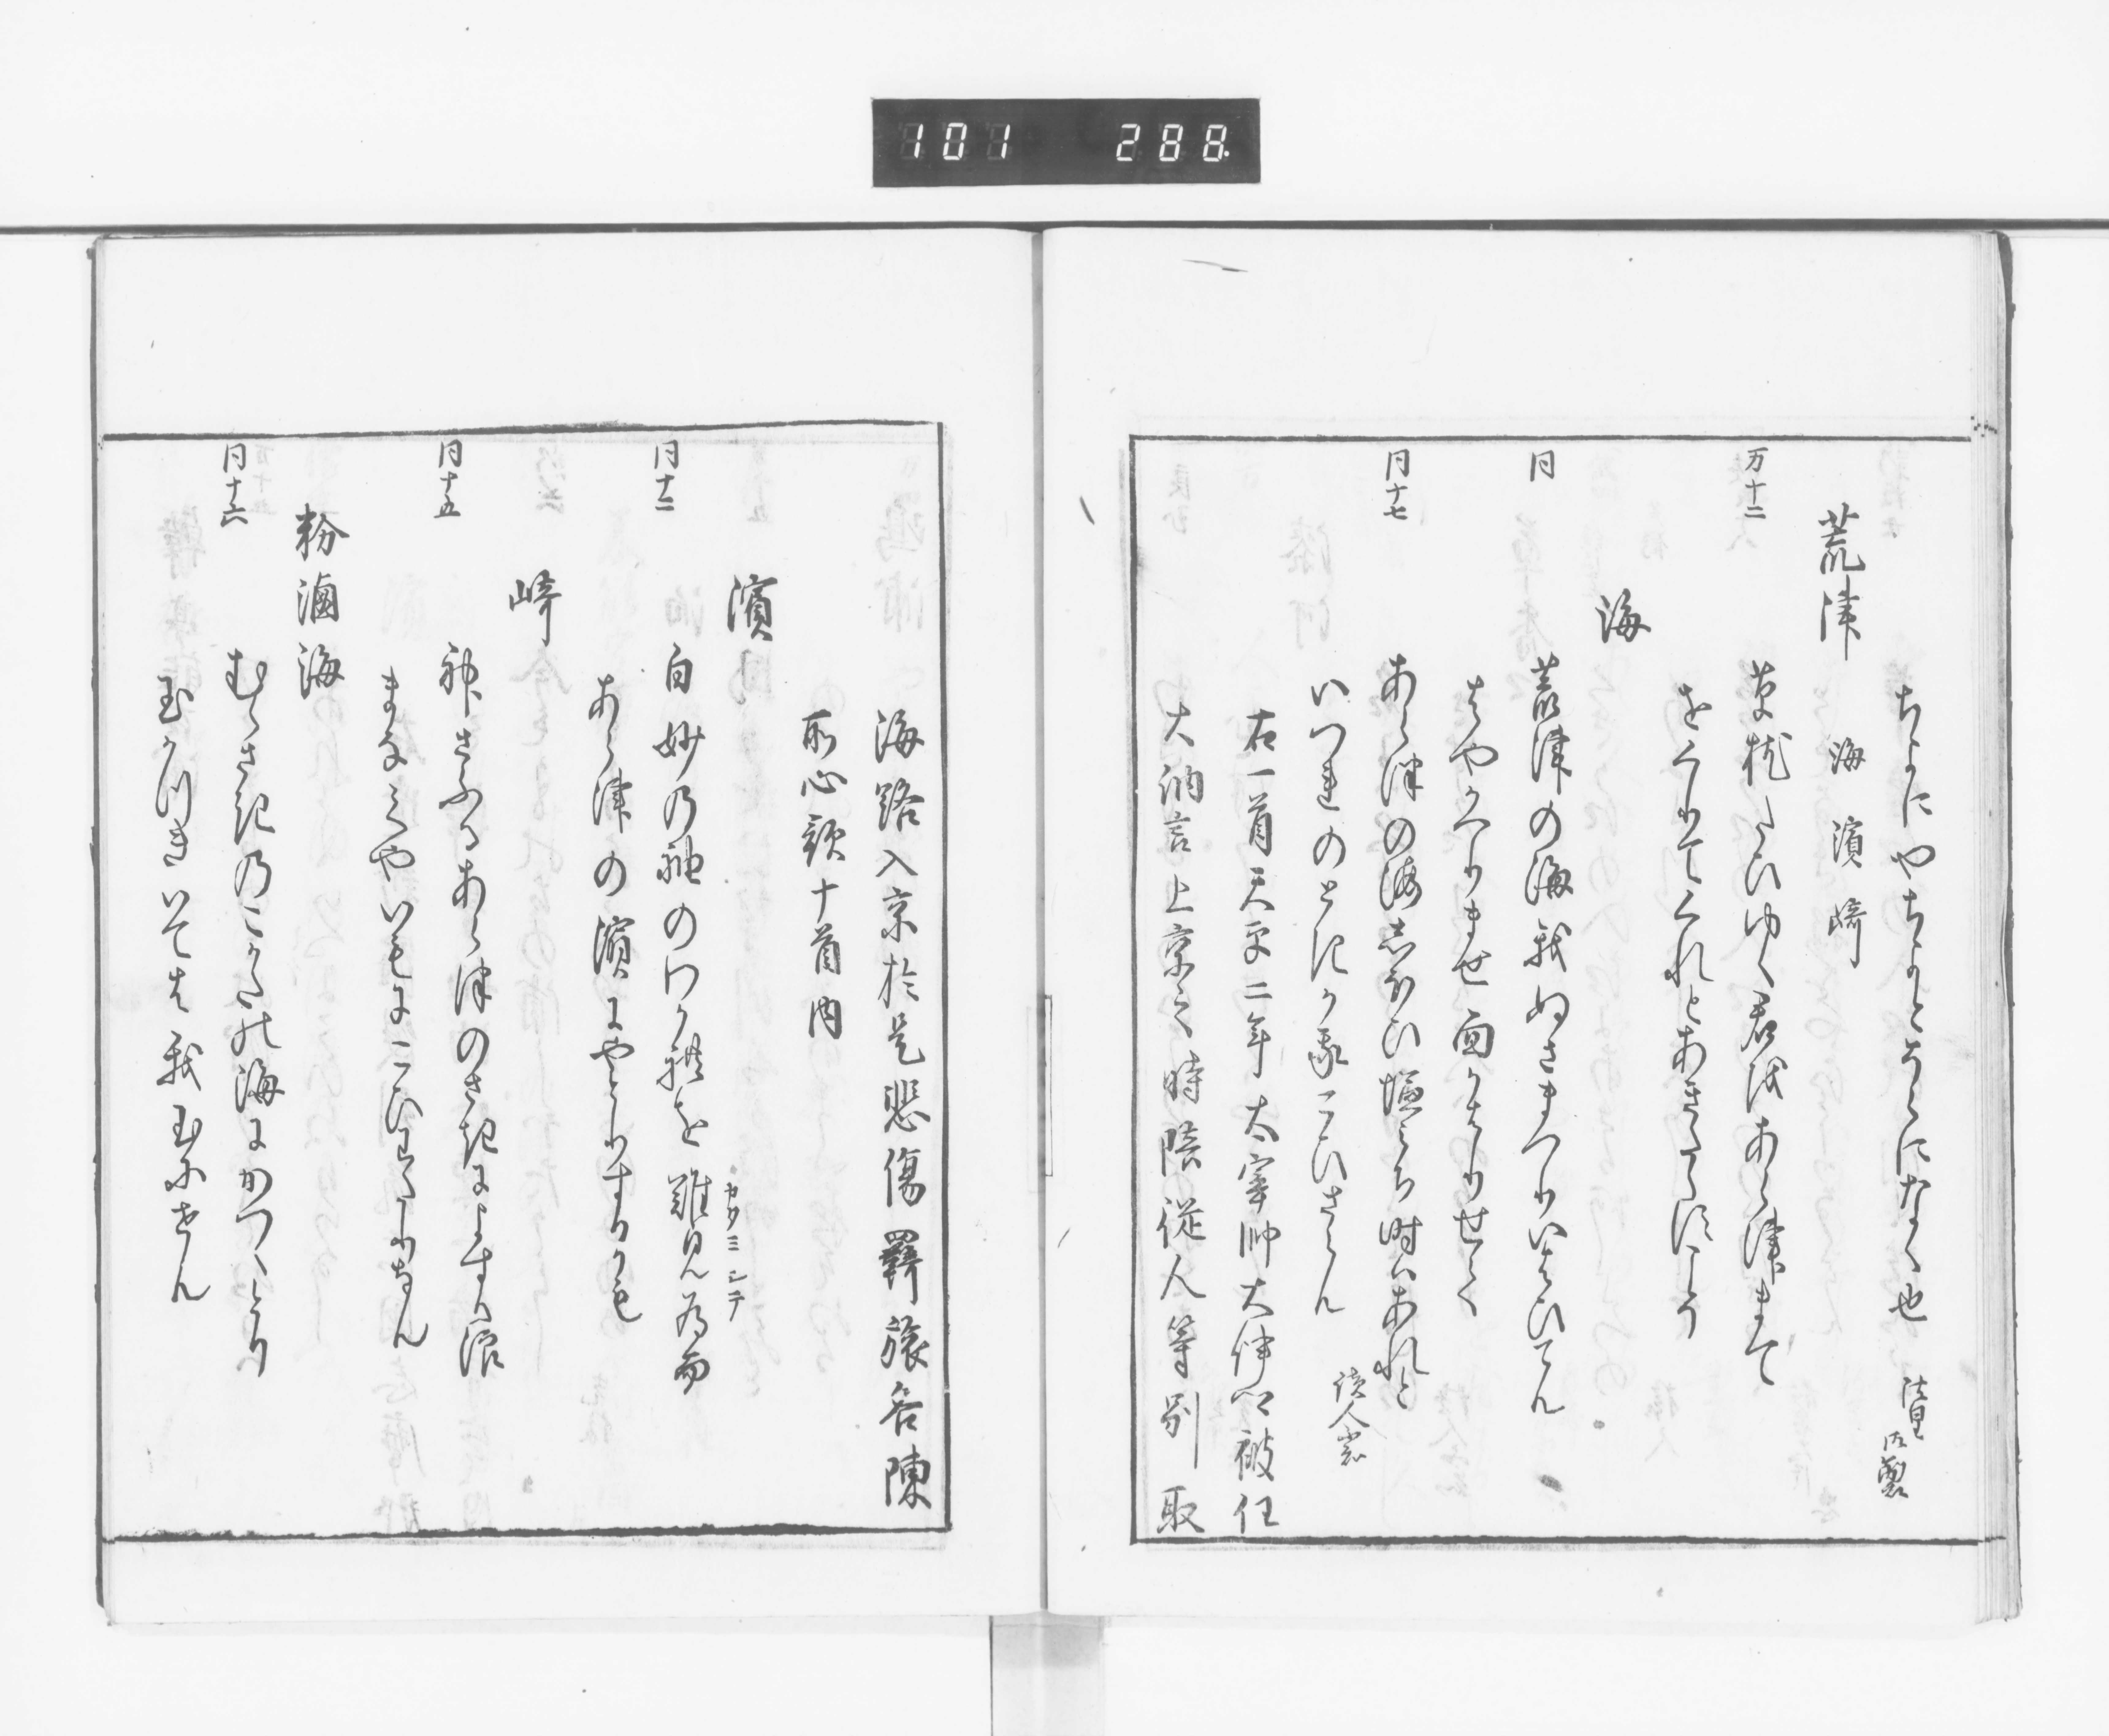 101 288
ちよにやちよとそらになく也 法皇御製
荒津 海 濱 崎
万十二 草枕たひゆく君をあら津まて
をくりてくれとあきたらすこそ
海
同 荒津の海我ぬさまつりいはひてん
はやかへりませ面かはりせて
同十七 あら津の海しほひ塩みち時はあれと
いつれのときか我こひさらん 読人不知
右一首天平二年大宰帥大伴卿被任
大納言上京之時陪従人等別取
海路入京於是悲傷羇旅各陳
所心歌十首内
濱
同十二 白妙乃袖のわかれを難見為而
カタミシテ
あら津の濱にやとりするかも
崎
同十五 神さふるあら津のさきによする浪
まなくやいもにこひわたりなん
粉滷海
同十六 むらさき乃こかたの海にかつくとり
玉かつきいては我玉にせん